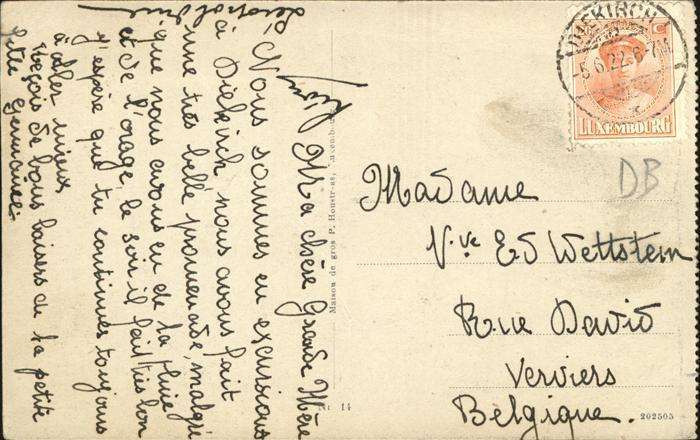 Ma chère Grande Mère
Nous sommes en excursions
à Diekirch nous avons fait
une très belle promenade, malgré
que nous avons eu de la pluie
et de l'orage, le soir il fait très bon
J'espère que tu continues toujours
à aller mieux
Reçois de bons baisers de ta petite
fille Germaine
Léopoldine
Léon
Maison de gros P. Houstraas, Luxembourg
Nr. 14
DIEKIRCH
-5.6.22.6-7M
LUXEMBOURG
DB
Madame
Vve Ed Wettstein
Rue David
Verviers
Belgique.
202503